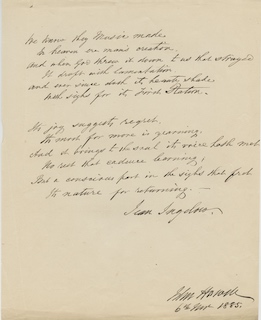 We knew they Music made
In heaven ere man's creation,
And when God threw it down to us that strayed
It dropt with lamentation
And ever since doth its
With sighs for its first station.
Its joy suggests regret,
Its most for more is yearning;
And it brings to the soul its voice hath met
No rest that
But a conscious part in the sighs that fret
Its nature for returning. —
Jean Ingelow.
John
6th Nov 1885.